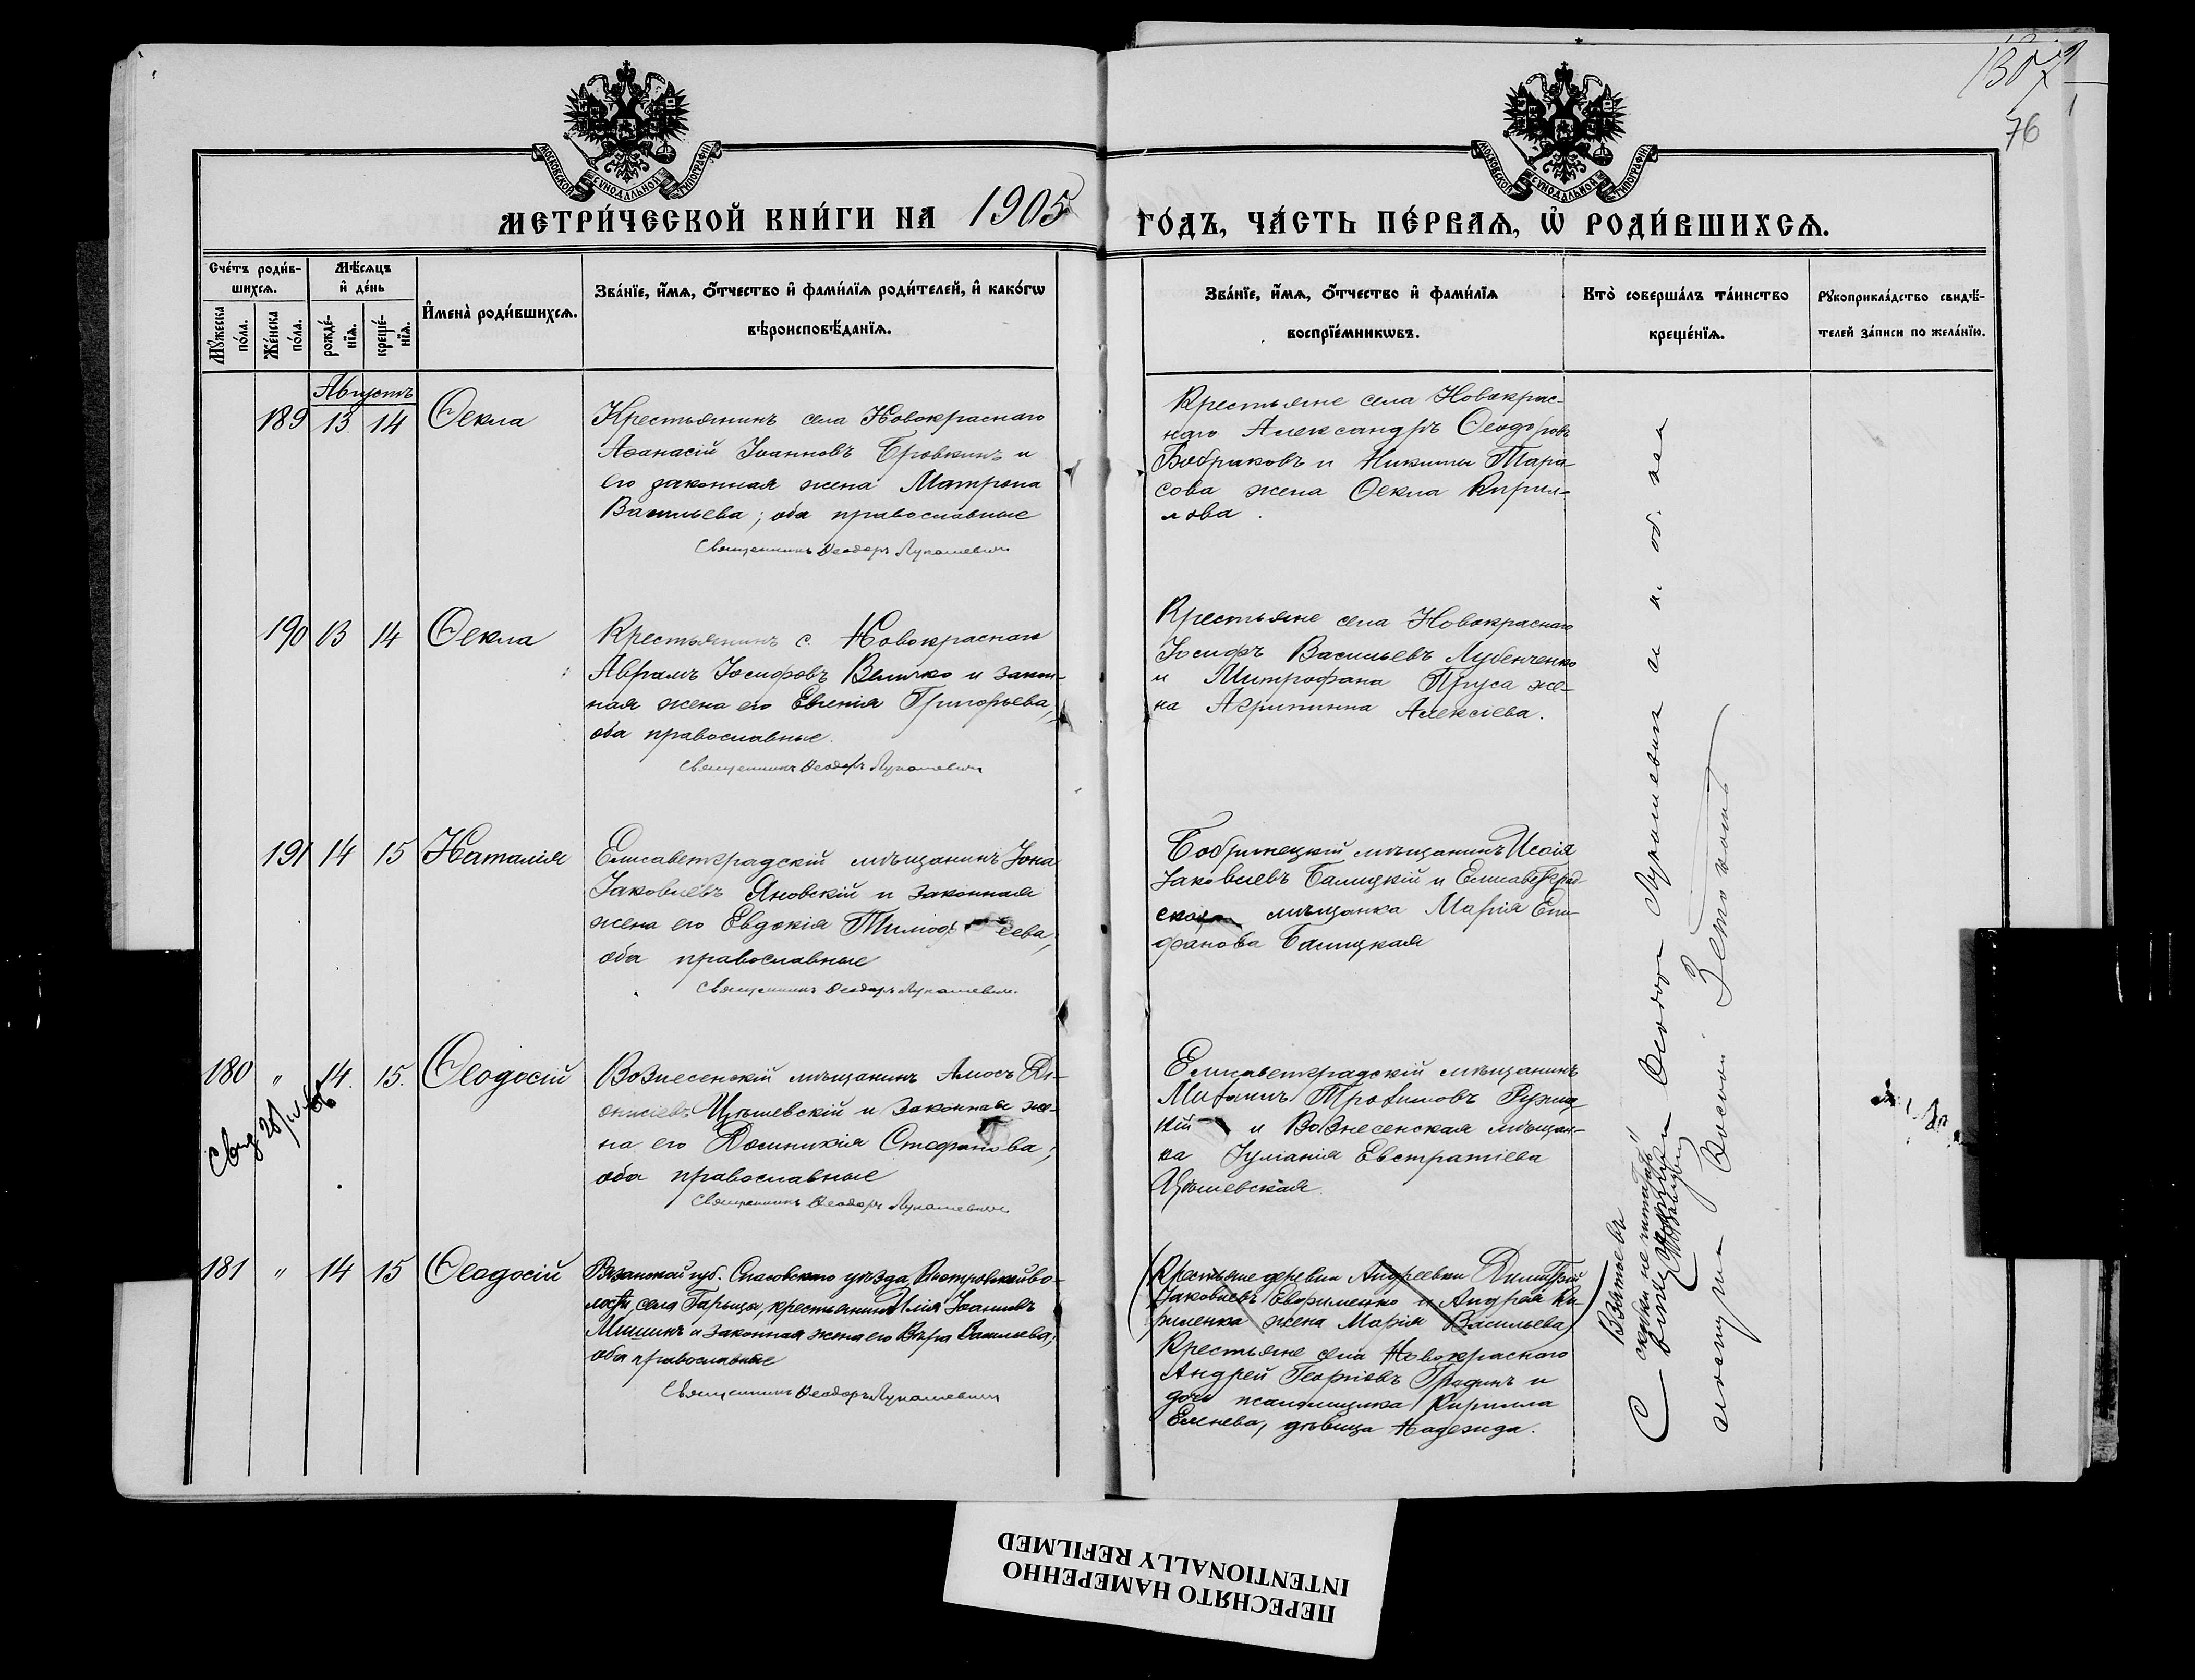 1307
76
МОСКОВСКОЙ СѴНОДАЛЬНОЙ ТИПОГРАФІИ
МОСКОВСКОЙ СѴНОДАЛЬНОЙ ТИПОГРАФІИ
МЕТРИ́ЧЕСКОЙ КНИ́ГИ НА 1905
ГО́ДЪ, ЧА́СТЬ ПЕ́РВАѦ, Ѽ РОДИ́ВШИХСѦ.
Сче́тъ роди́в-
шихсѧ.
Мꙋ́жеска
по́ла.
Же́нска
по́ла.
Мѣ́сѧцъ
и҆ де́нь
рожде́-
нїѧ.
креще́-
нїѧ.
И҆мена̀ роди́вшихсѧ.
Зва́нїе, и҆́мѧ, ѻ҆́тчество и҆ фами́лїѧ роди́телей, и҆ како́гѡ
вѣроисповѣ́данїѧ.
Зва́нїе, и҆́мѧ, ѻ҆́тчество и҆ фами́лїѧ
воспрїе́мникѡвъ.
Кто̀ соверша́лъ та́инство
креще́нїѧ.
Рꙋкоприкла́дство свидѣ́-
телей за́писи по жела́нїю.
Августъ
189 13 14 Ѳекла
Крестьянинъ села Новокраснаго
Аѳанасій Іоанновъ Бровкинъ и
его законная жена Матрона
Васильева; оба православные
Священникъ Ѳеодоръ Лукашевичъ
Крестьяне села Новокрас-
наго Александръ Ѳеодоровъ
Бобраковъ и Никиты Тара-
сова жена Ѳекла Кирил-
лова.
190 13 14 Ѳекла
Крестьянинъ с. Новокраснаго
Аврамъ Іосифовъ Величко и закон-
ная жена его Евгенія Григорьева,
оба православные.
Священникъ Ѳеодоръ Лукашевичъ
Крестьяне села Новокраснаго
Іосифъ Васильевъ Лубенченко
и Митрофана Пруса же-
на Агрипинна Алексіева.
191 14 15 Наталія
Елисаветградскій мѣщанинъ Іона
Іаковлевъ Яновскій и законная
жена его Евдокія Тимоф еева,
оба православные
Священникъ Ѳеодоръ Лукашевичъ
Бобринецкій мѣщанинъ Исаія
Іаковлевъ Балицкій и Елисаветград
ская мѣщанка Марія Епи-
фанова Балицкая
180 " 14. 15. Ѳеодосій
Вознесенскій мѣщанинъ Амосъ Ді-
онисіевъ Цѣшевскій и законная же-
на его Доминикія Стефанова;
оба православные
Священникъ Ѳеодоръ Лукашевичъ
Елисаветградскій мѣщанинъ
Трофимовъ
кій и Вознесенская мѣщан-
ка Іуліанія Евстратіева
Цѣшевская
181 " 14 15 Ѳеодосій
Рязанской губ. Спасовскаго уѣзда, во-
лости, села крестьянинъ Илія Іоанновъ
Мишинъ и законная жена его Вѣра Васильева;
оба православные
Священникъ Ѳеодоръ Лукашевичъ
(Крестьяне деревни Андреевки Димитрій
Іаковлевъ Евфименко и Андрея Ки-
риленка жена Марія Васильева)
Крестьяне села Новокраснаго
Андрей Георгіевъ Градинъ и
дочь псаломщика Кирилла
Еленева, дѣвица Надежда.
Взятое въ
скобки не читать"
Священникъ Ѳеодоръ Лукашевичъ
ПЕРЕСНЯТО НАМЕРЕННО
INTENTIONALLY REFILMED